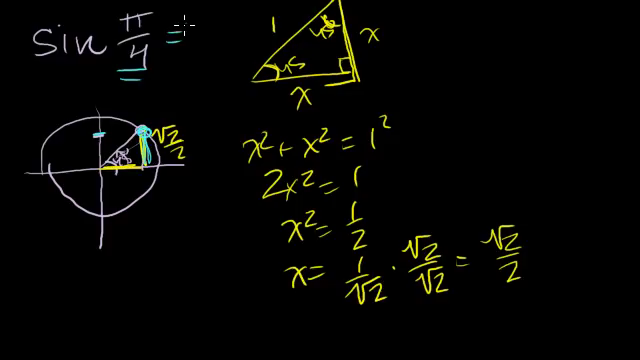 sin π/4 =
1
45
45
x
x
√2/2
45°
x² + x² = 1²
2x² = 1
x² = 1/2
x = 1/√2 · √2/√2 = √2/2